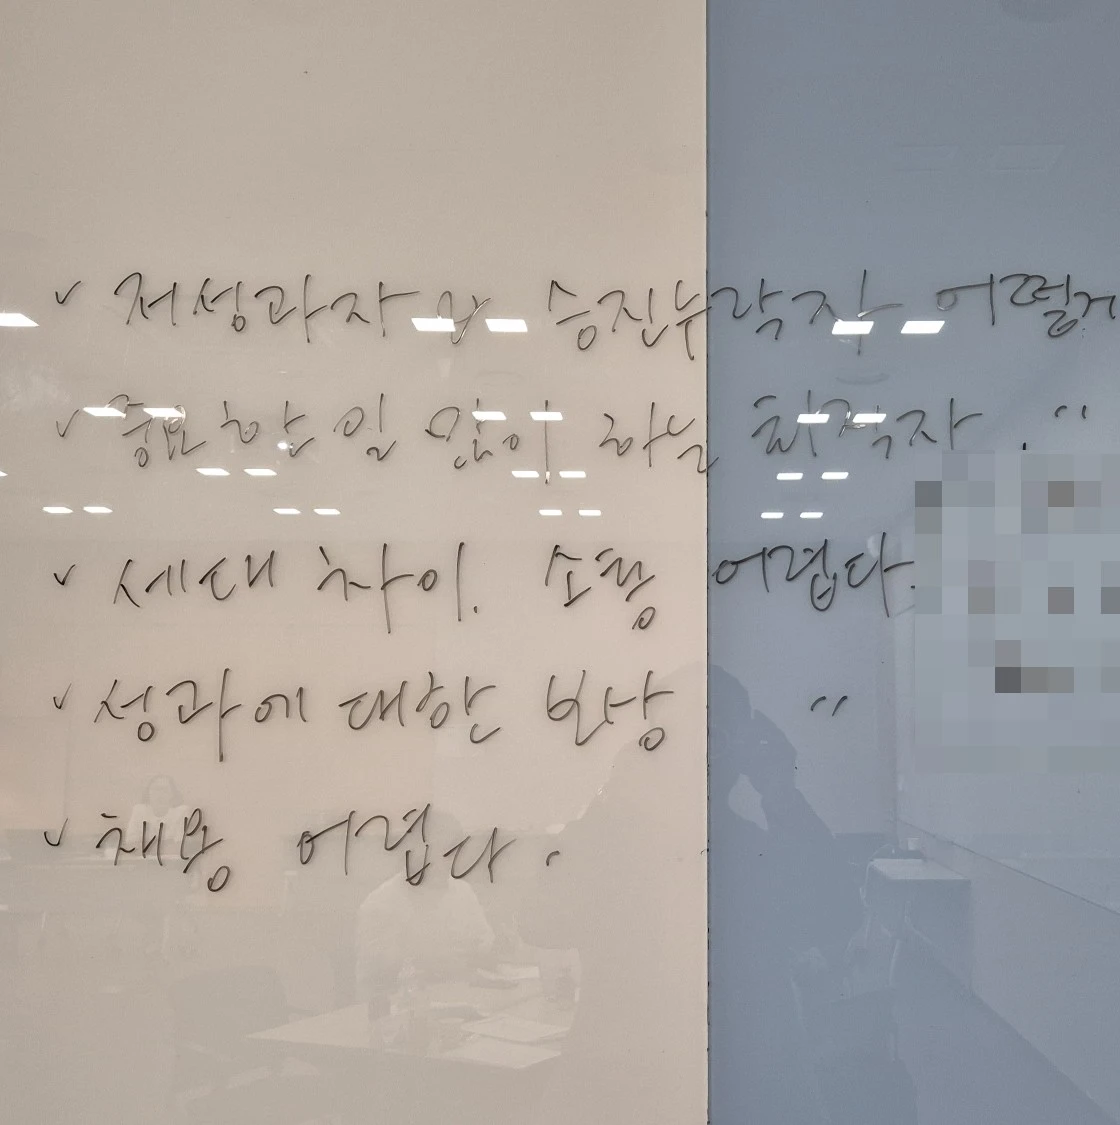 ✓ 저성과자와 승진누락자 어떻게
✓ 중요한 일 많이 하는 퇴직자. "
✓ 세대 차이. 소통 어렵다.
✓ 성과에 대한 보상 "
✓ 채용 어렵다.